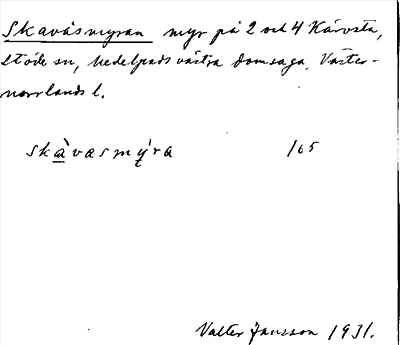 Skavåsmyran myr på 2 och 4 Kärvsta,
Stöde sn, Medelpads västra domsaga, Väster-
norrlands l.
skàvasmýra 1/65
Valter Jansson 1931.